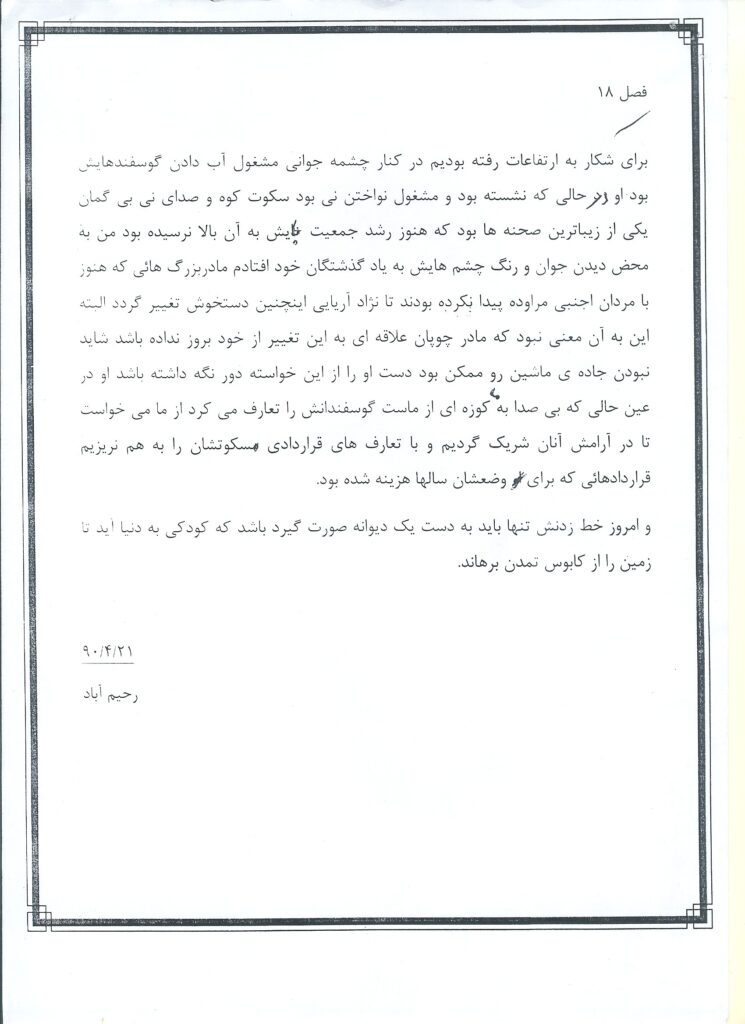 فصل ۱۸
برای شکار به ارتفاعات رفته بودیم در کنار چشمه جوانی مشغول آب دادن گوسفندهایش
بود او در حالی که نشسته بود و مشغول نواختن نی بود سکوت کوه و صدای نی بی گمان
یکی از زیباترین صحنه ها بود که هنوز رشد جمعیت پایش به آن بالا نرسیده بود من به
محض دیدن جوان و رنگ چشم هایش به یاد گذشتگان خود افتادم مادربزرگ هائی که هنوز
با مردان اجنبی مراوده پیدا نکرده بودند تا نژاد آریایی اینچنین دستخوش تغییر گردد البته
این به آن معنی نبود که مادر چوپان علاقه ای به این تغییر از خود بروز نداده باشد شاید
نبودن جاده ی ماشین رو ممکن بود دست او را از این خواسته دور نگه داشته باشد او در
عین حالی که بی صدا به کوزه ای از ماست گوسفندانش را تعارف می کرد از ما می خواست
تا در آرامش آنان شریک گردیم و با تعارف های قراردادی سکوتشان را به هم نریزیم
قراردادهائی که برای وضعشان سالها هزینه شده بود.
و امروز خط زدنش تنها باید به دست یک دیوانه صورت گیرد باشد که کودکی به دنیا آید تا
زمین را از کابوس تمدن برهاند.
۹۰/۴/۲۱
رحیم آباد